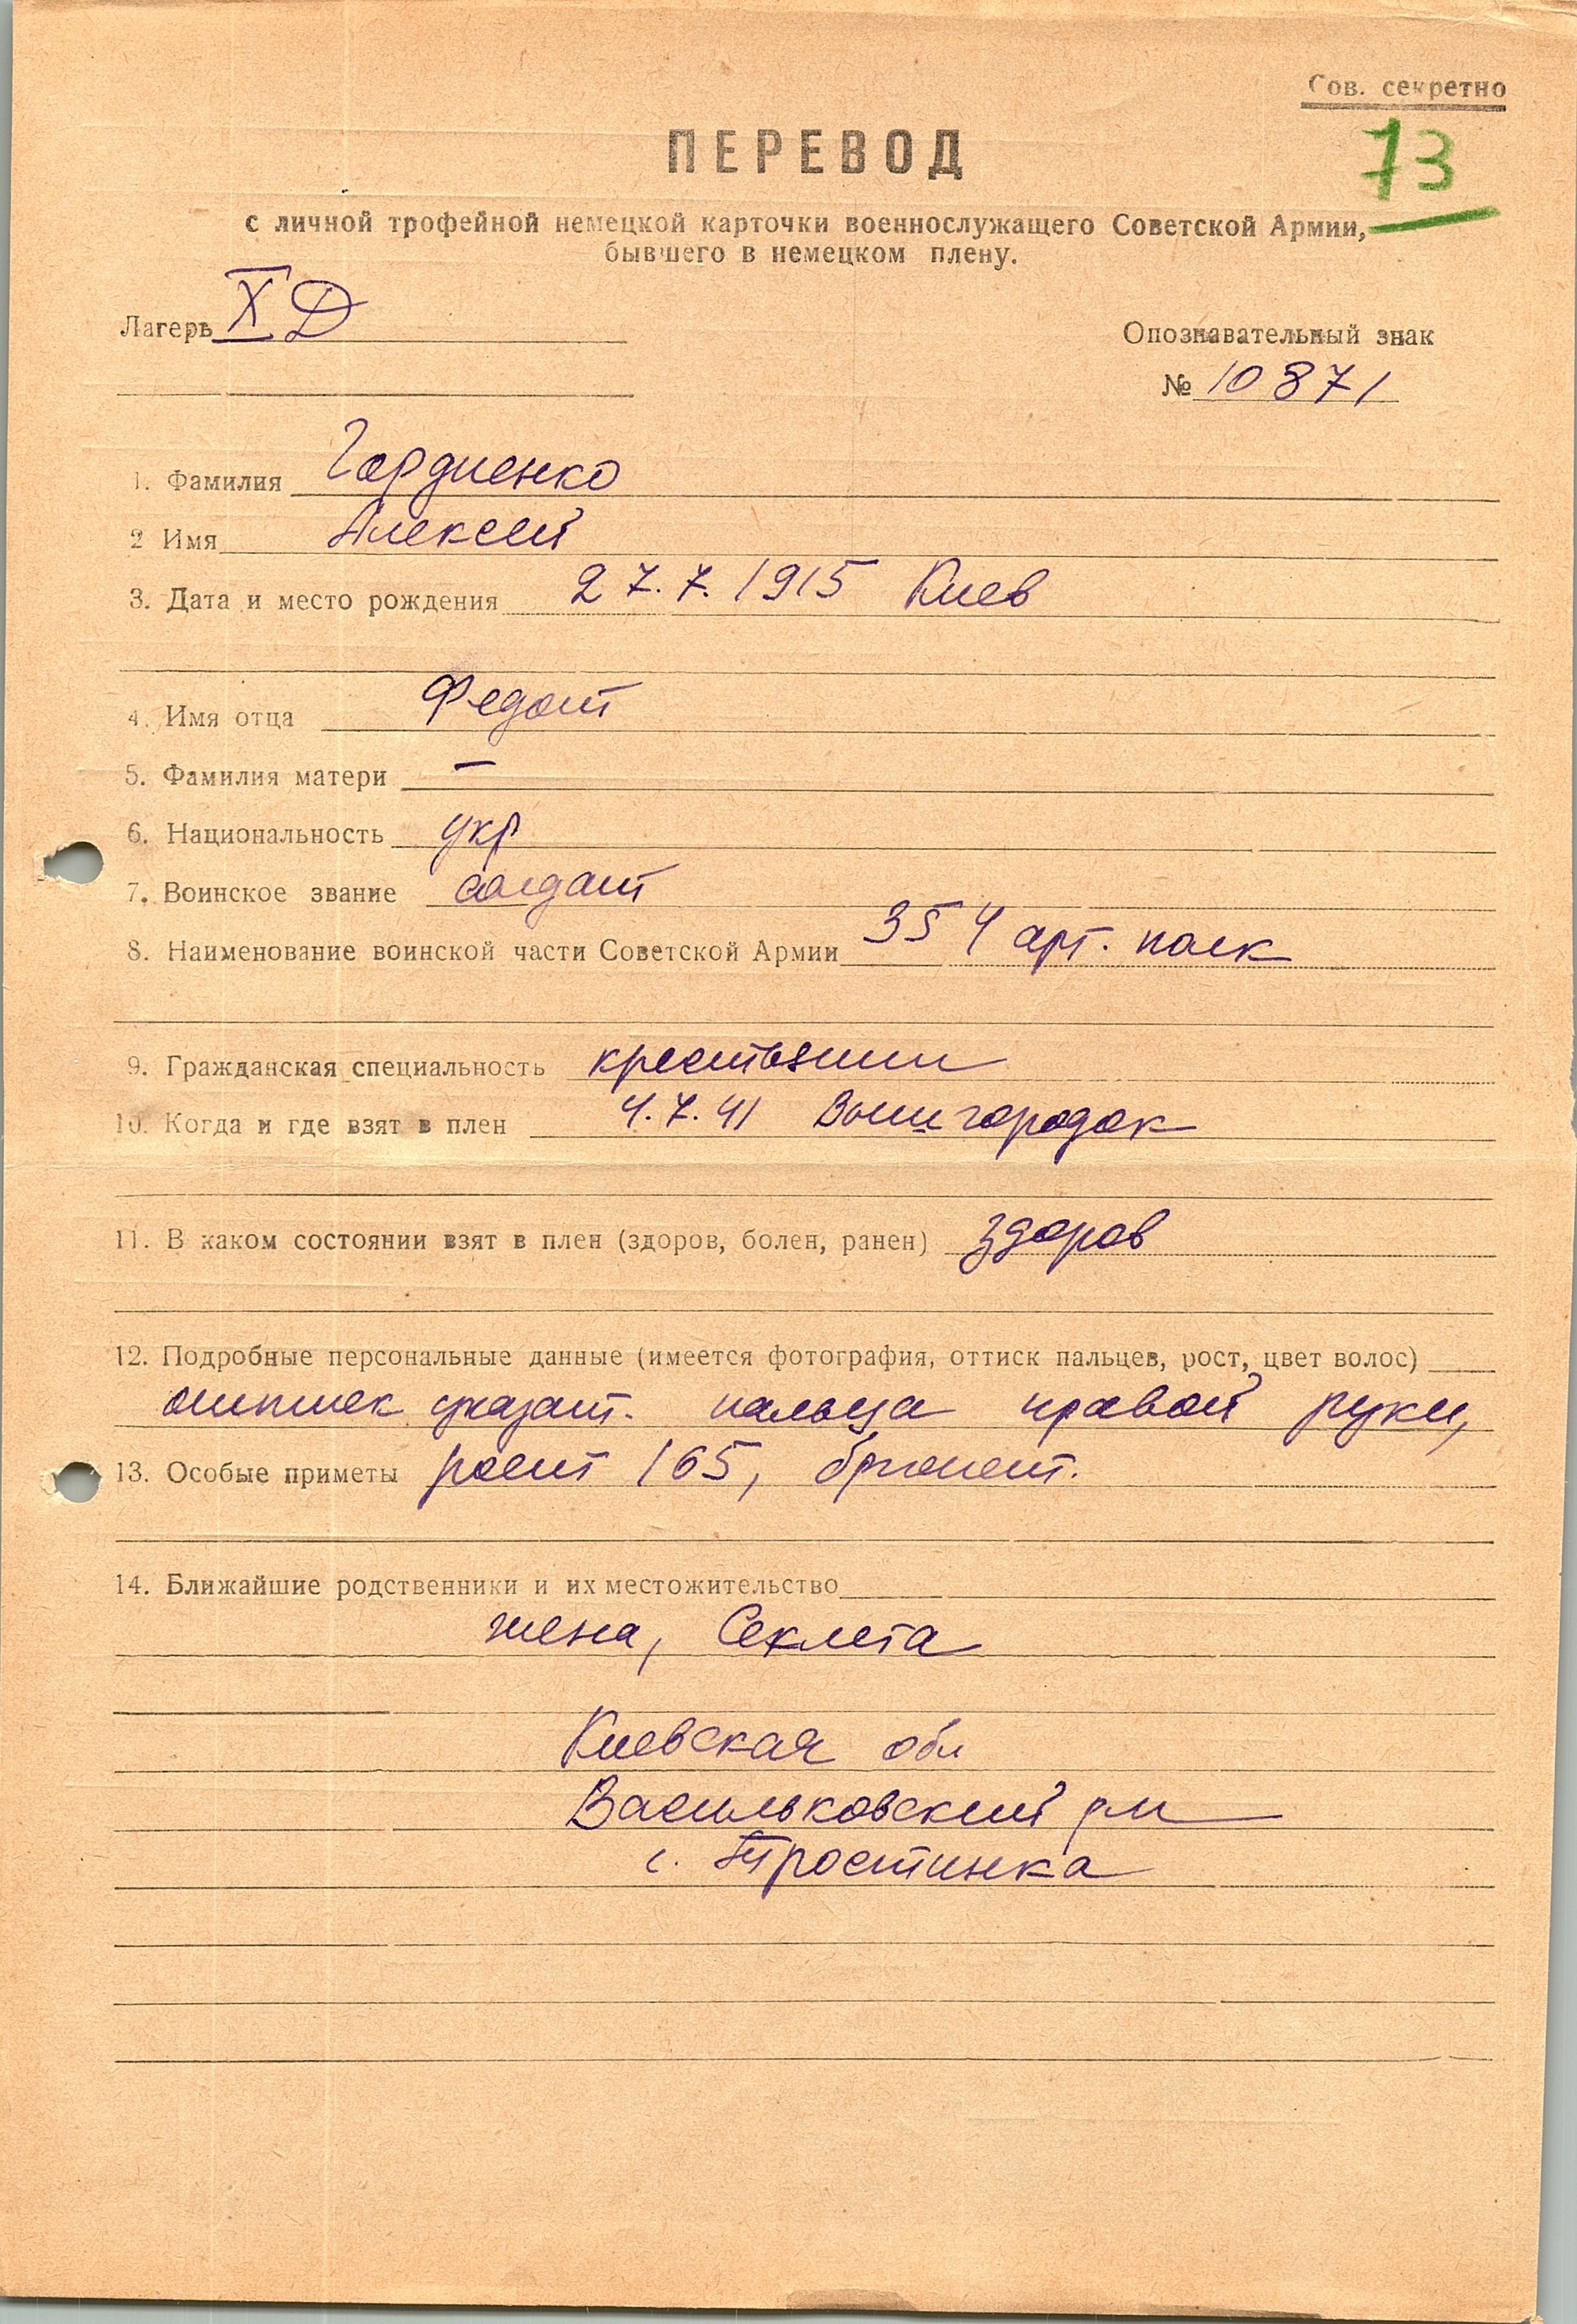 Сов. секретно
73
ПЕРЕВОД
с личной трофейной немецкой карточки военнослужащего Советской Армии,
бывшего в немецком плену.
Лагерь X Д
Опознавательный знак
№ 10871
1. Фамилия Гордиенко
2 Имя Алексей
3. Дата и место рождения 27.7.1915 Киев
4. Имя отца Федот
5. Фамилия матери —
6. Национальность укр
7. Воинское звание солдат
8. Наименование воинской части Советской Армии 354 арт. полк
9. Гражданская специальность крестьянин
10. Когда и где взят в плен 4.7.41 Вышгородок
11. В каком состоянии взят в плен (здоров, болен, ранен) здоров
12. Подробные персональные данные (имеется фотография, оттиск пальцев, рост, цвет волос)
оттиск указат. пальца правой руки,
13. Особые приметы рост 165, брюнет.
14. Ближайшие родственники и их местожительство
жена, Секлета
Киевская обл
Васильковский р-н
с. Тростинка